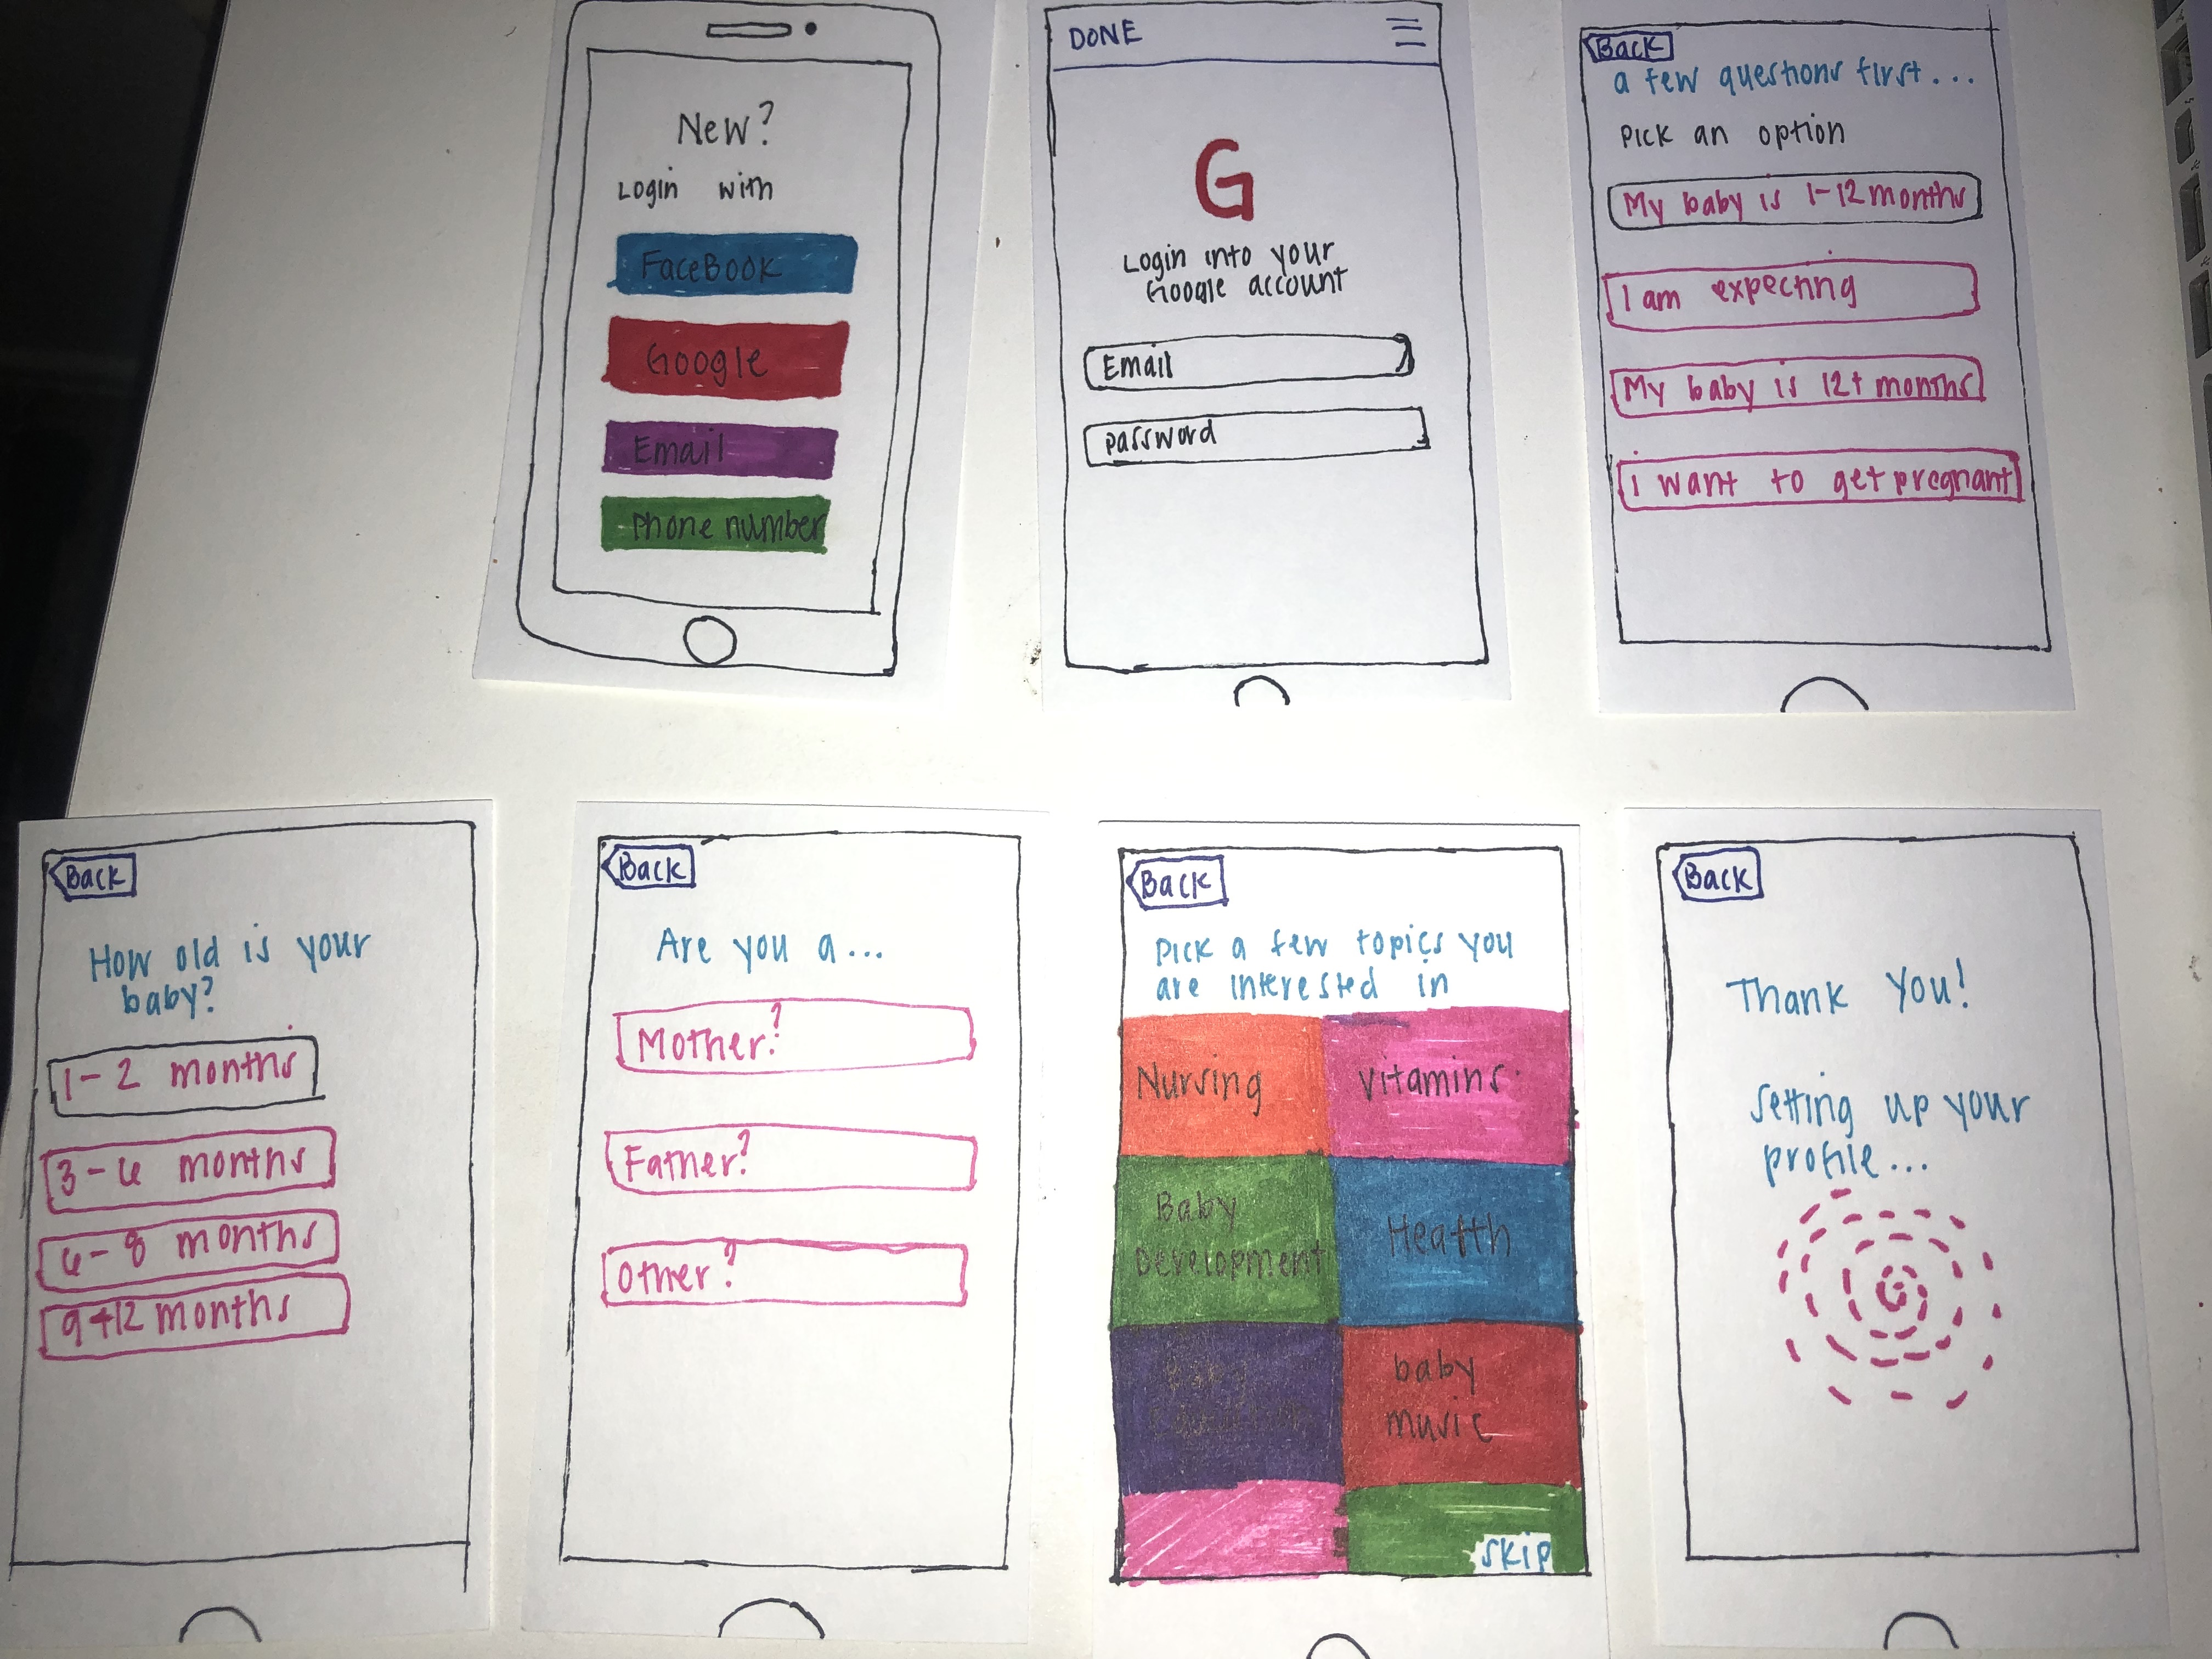 New?
Login with
FaceBook
Google
Email
Phone number
DONE
G
Login into your
Google account
Email
password
Back
a few questions first...
Pick an option
My baby is 1-12 months
I am expecting
My baby is 12+ months
i want to get pregnant
Back
How old is your
baby?
1-2 months
3-6 months
6-8 months
9+12 months
Back
Are you a...
Mother?
Father?
Other?
Back
Pick a few topics you
are interested in
Nursing
Vitamins
Baby
Development
Health
baby
music
SKIP
Back
Thank You!
Setting up your
profile...